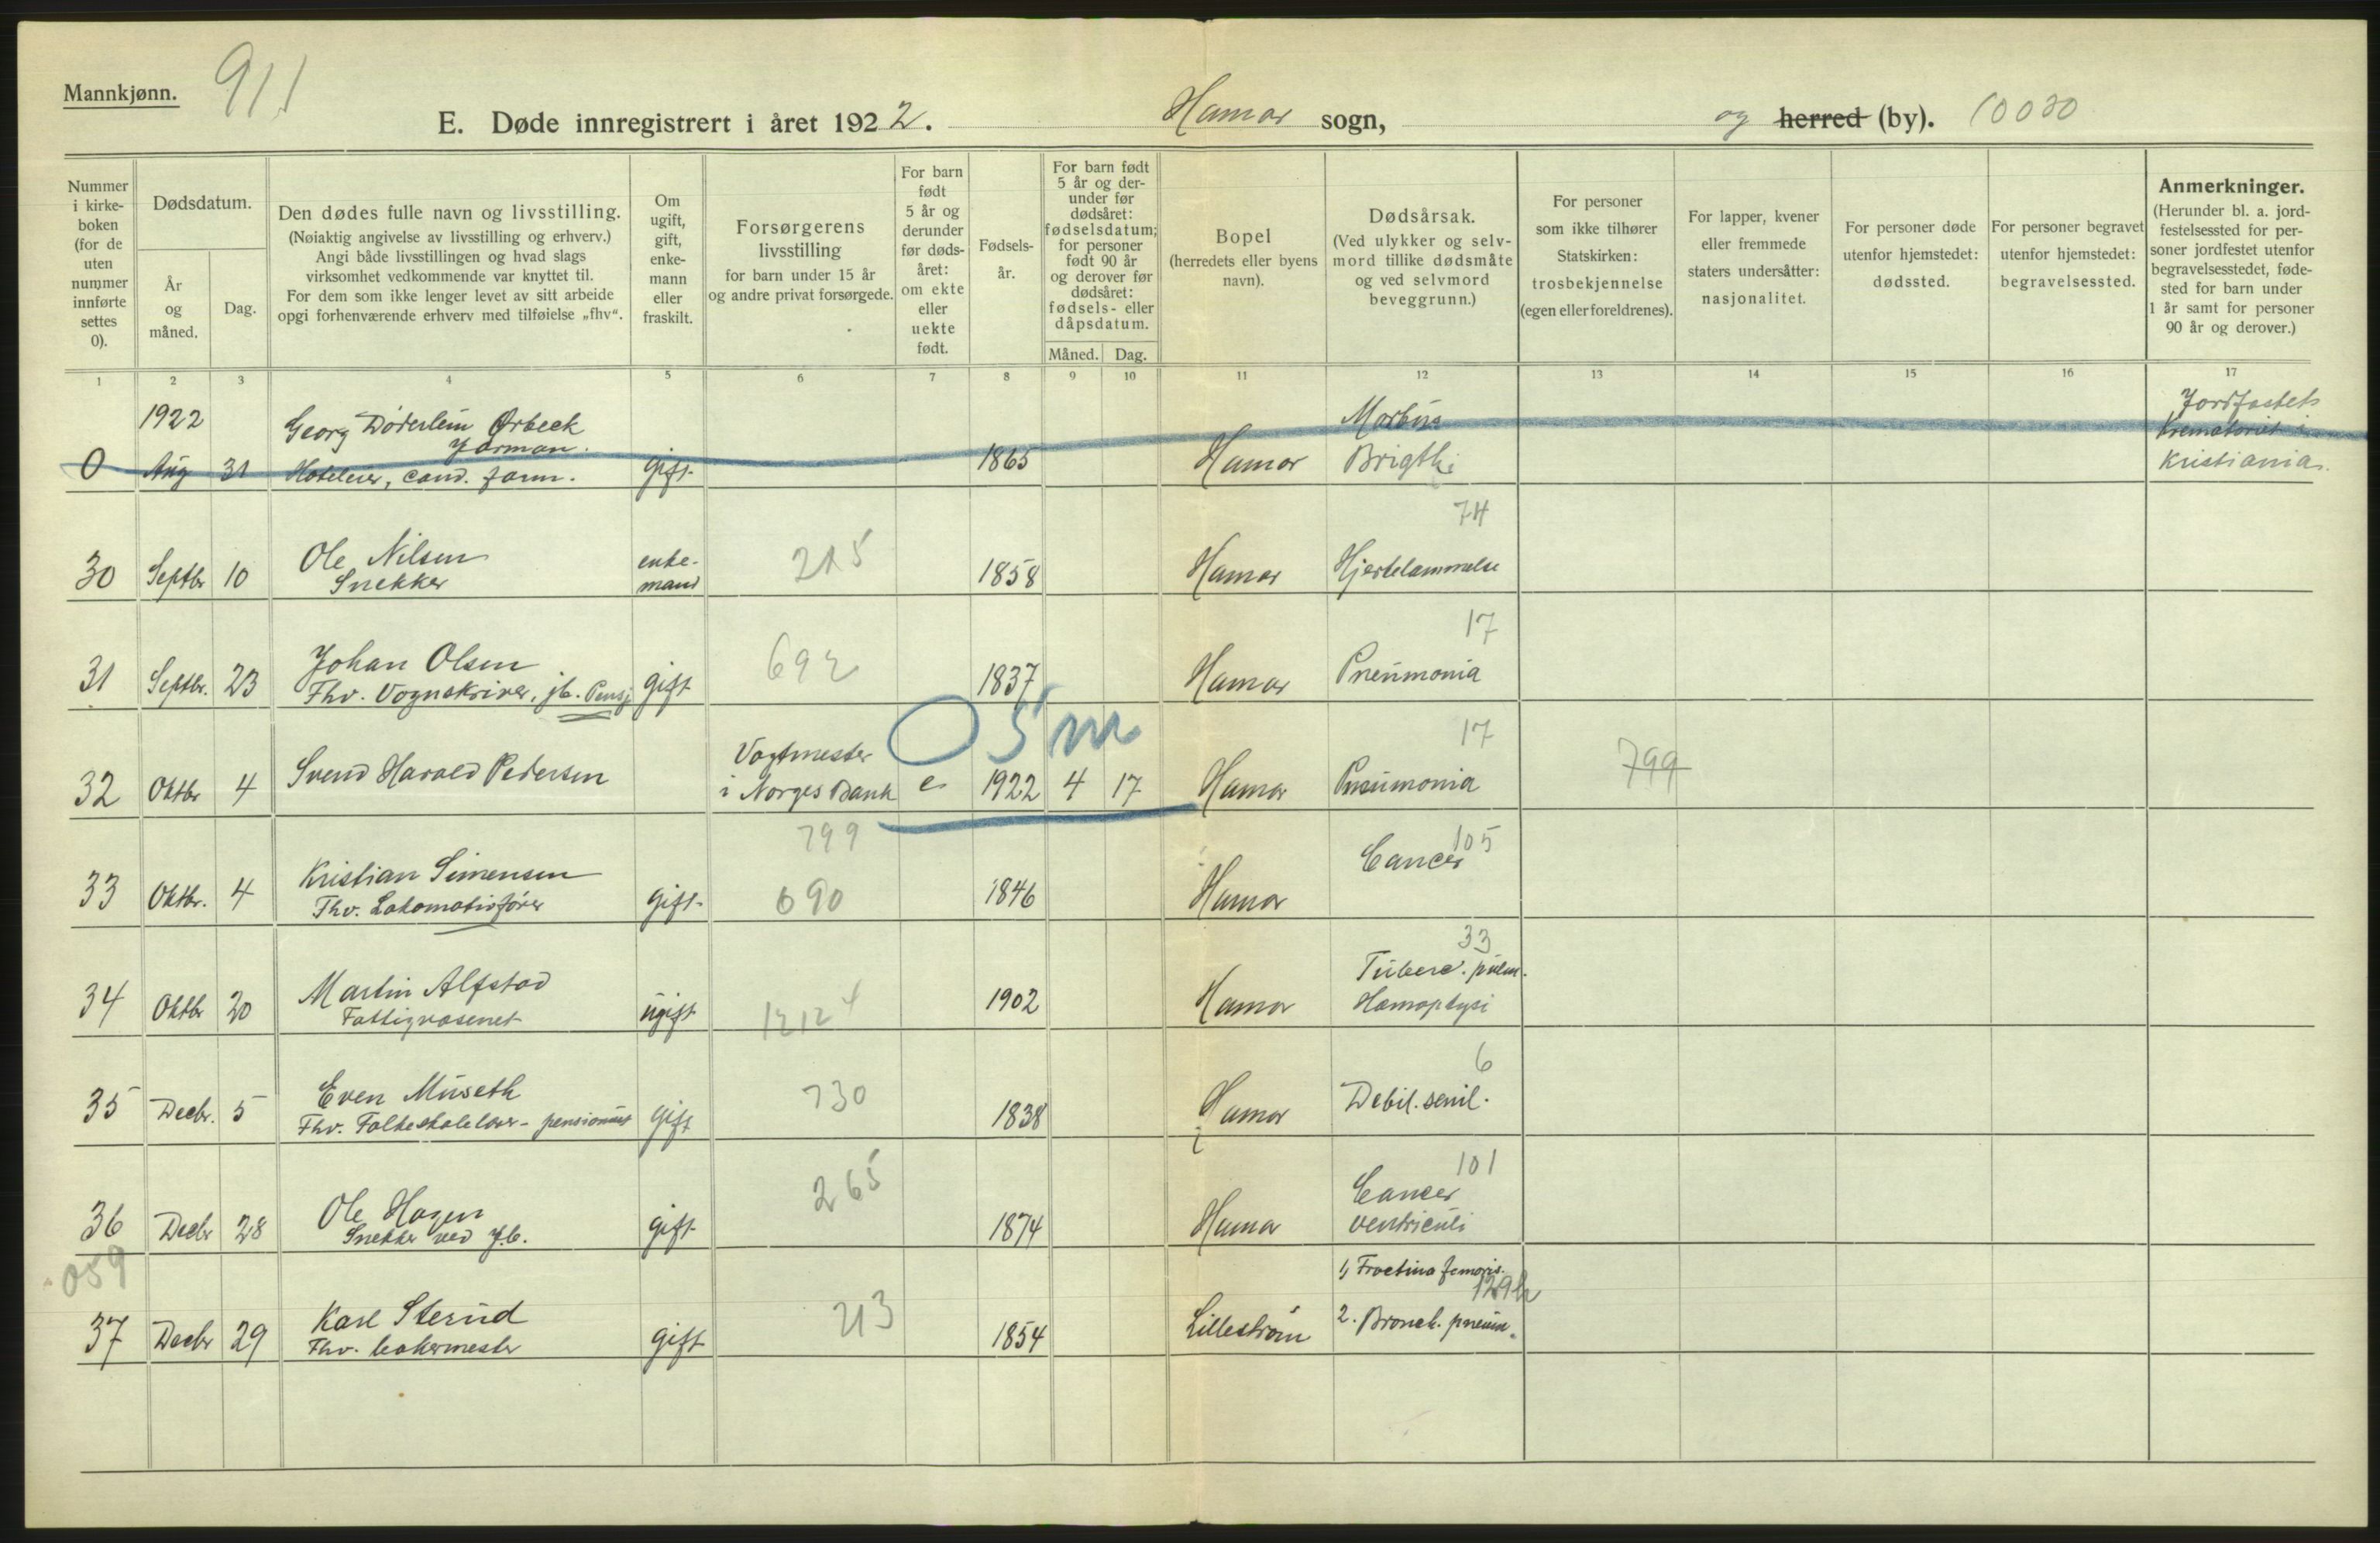 Mannkjønn.
911
E. Døde innregistrert i året 1922.
Hamar sogn,
og herred (by).
10030
Nummer
i kirke-
boken
(for de
uten
nummer
innførte
settes
0).
Dødsdatum.
År
og
måned.
Dag.
Den dødes fulle navn og livsstilling.
(Nøiaktig angivelse av livsstilling og erhverv.)
Angi både livsstillingen og hvad slags
virksomhet vedkommende var knyttet til.
For dem som ikke lenger levet av sitt arbeide
opgi forhenværende erhverv med tilføielse „fhv“.
Om
ugift,
gift,
enke-
mann
eller
fraskilt.
Forsørgerens
livsstilling
for barn under 15 år
og andre privat forsørgede.
For barn
født
5 år og
derunder
før døds-
året:
om ekte
eller
uekte
født.
Fødsels-
år.
For barn født
5 år og der-
under før
dødsåret:
fødselsdatum;
for personer
født 90 år
og derover før
dødsåret:
fødsels- eller
dåpsdatum.
Måned.
Dag.
Bopel
(herredets eller byens
navn).
Dødsårsak.
(Ved ulykker og selv-
mord tillike dødsmåte
og ved selvmord
beveggrunn.)
For personer
som ikke tilhører
Statskirken:
trosbekjennelse
(egen eller foreldrenes).
For lapper, kvener
eller fremmede
staters undersåtter:
nasjonalitet.
For personer døde
utenfor hjemstedet:
dødssted.
For personer begravet
utenfor hjemstedet:
begravelsessted.
Anmerkninger.
(Herunder bl. a. jord-
festelsessted for per-
soner jordfestet utenfor
begravelsesstedet, føde-
sted for barn under
1 år samt for personer
90 år og derover.)
1 2 3 4 5 6 7 8 9 10 11 12 13 14 15 16 17
1922
Georg Døderlein Ørbeck
Yorman.
Morbus
Jordfestet
Krematoriet i
0 Aug 31 Hoteleier, cand. farm. gift 1865 Hamar Brigthi Kristiania.
74
Ole Nilsen enke-
30 Septbr 10 Snekker mand 215 1858 Hamar Hjertelammelse
17
Johan Olsen 692
31 Septbr. 23 Fhv. Vognskriver, jb. Pensj gift 1837 Hamar Pneumonia
0 5 m
17
Vagtmester
799
32 Oktbr 4 Svend Harald Pedersen i Norges Bank e 1922 4 17 Hamar Pneumonia
799
105
Kristian Simensen Cancer
33 Oktbr. 4 Fhv. Lokomotivfører gift 690 1846 Hamar
33
Martin Alfstad Tuberc. pulm.
34 Oktbr 20 Fattigvæsenet ugift 1212 4 1902 Hamar Hæmoptysi
6
Even Museth 730
35 Decbr. 5 Fhv. Folkeskolelærer - pensionist gift 1838 Hamar Debil. senil.
101
Ole Hagen 265 Cancer
36 Decbr 28 Snekker ved jb. gift 1874 Hamar ventriculi
059
1) Fractura femoris.
129b
Karl Sterud
37 Decbr 29 Fhv. bakermester gift 213 1854 Lillestrøm 2. Bronch. pneum.